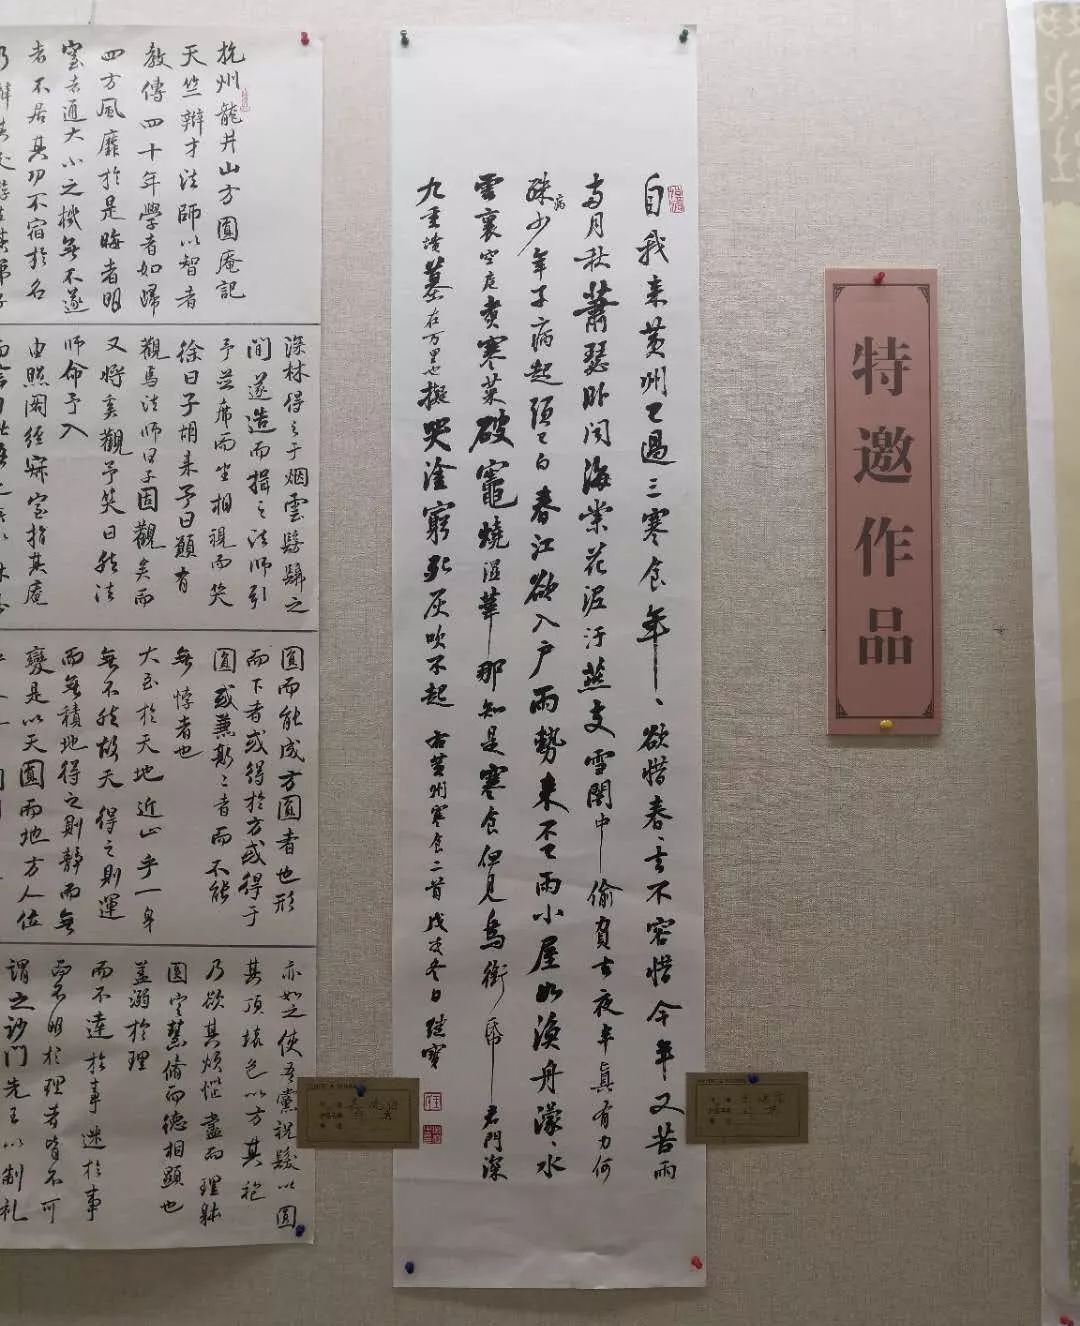 自我来黄州已過三寒食年〻欲惜春〻去不容惜今年又苦雨
兩月秋蕭瑟卧闻海棠花泥汙燕支雪闇中偷負去夜半真有力何
殊少病年子病起須已白春江欲入户雨勢来不已雨小屋如漁舟濛〻水
雲裏空庖煮寒菜破竈燒濕葦那知是寒食但见烏銜帋君門深
九重墳墓在万里也擬哭塗窮死灰吹不起 右黄州寒食二首 戊戌冬日
特邀作品
杭州龍井山方圓庵記
天竺辯才法師以智者
教傳四十年學者如歸
四方風靡於是晦者明
窒者通大小之機無不遂
者不居其功不宿於名
深林得之于烟雲髣髴之
間遂造而揖之法师引
予並席而坐相視而笑
徐曰子胡来予曰願有
觀焉法师曰子固觀矣而
又将奚觀予笑曰然法
师命予入
由照閣經寂室指其庵
圓而能成方圓者也形
而下者或得於方或得于
圓或兼斯二者而不能
無悖者也
大至於天地近止乎一身
無不然故天得之則運
而無積地得之則靜而無
變是以天圓而地方人位
亦如之使吾黨祝髮以圓
其頂壞色以方其袍
乃欲其煩惱盡而理體
圓定慧脩而德相顯也
蓋溺於理
而不達於事迷於事
而不明於理者皆不可
謂之沙門先王以制礼